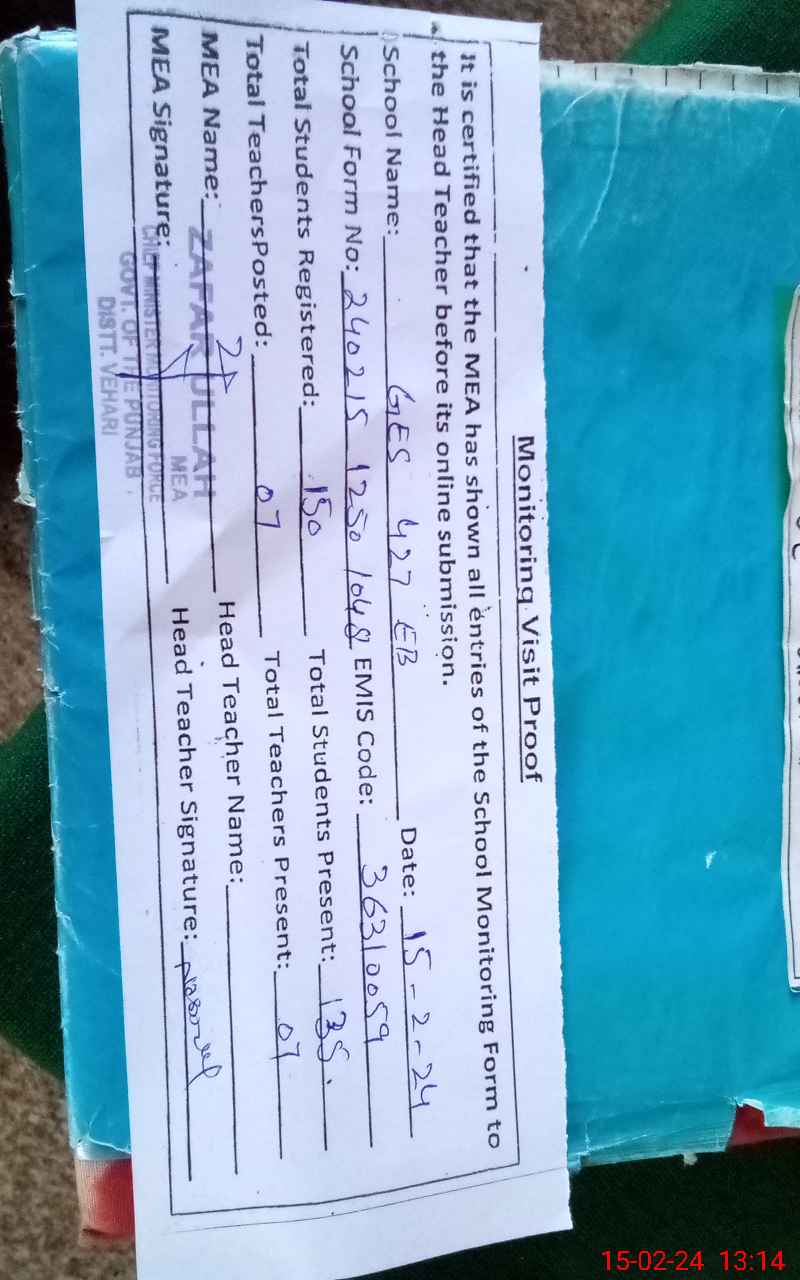 Monitoring Visit Proof
It is certified that the MEA has shown all entries of the School Monitoring Form to
the Head Teacher before its online submission.
School Name: GES 427 EB Date: 15-2-24
School Form No: 240215 1250 1048 EMIS Code: 36310059
Total Students Registered: 150 Total Students Present: 135.
Total TeachersPosted: 07 Total Teachers Present: 07
MEA Name: ZAFAR ULLAH Head Teacher Name:
MEA
MEA Signature: Head Teacher Signature:
CHIEF MINISTER MONITORING FORCE
GOVT. OF THE PUNJAB
DISTT. VEHARI
15-02-24 13:14